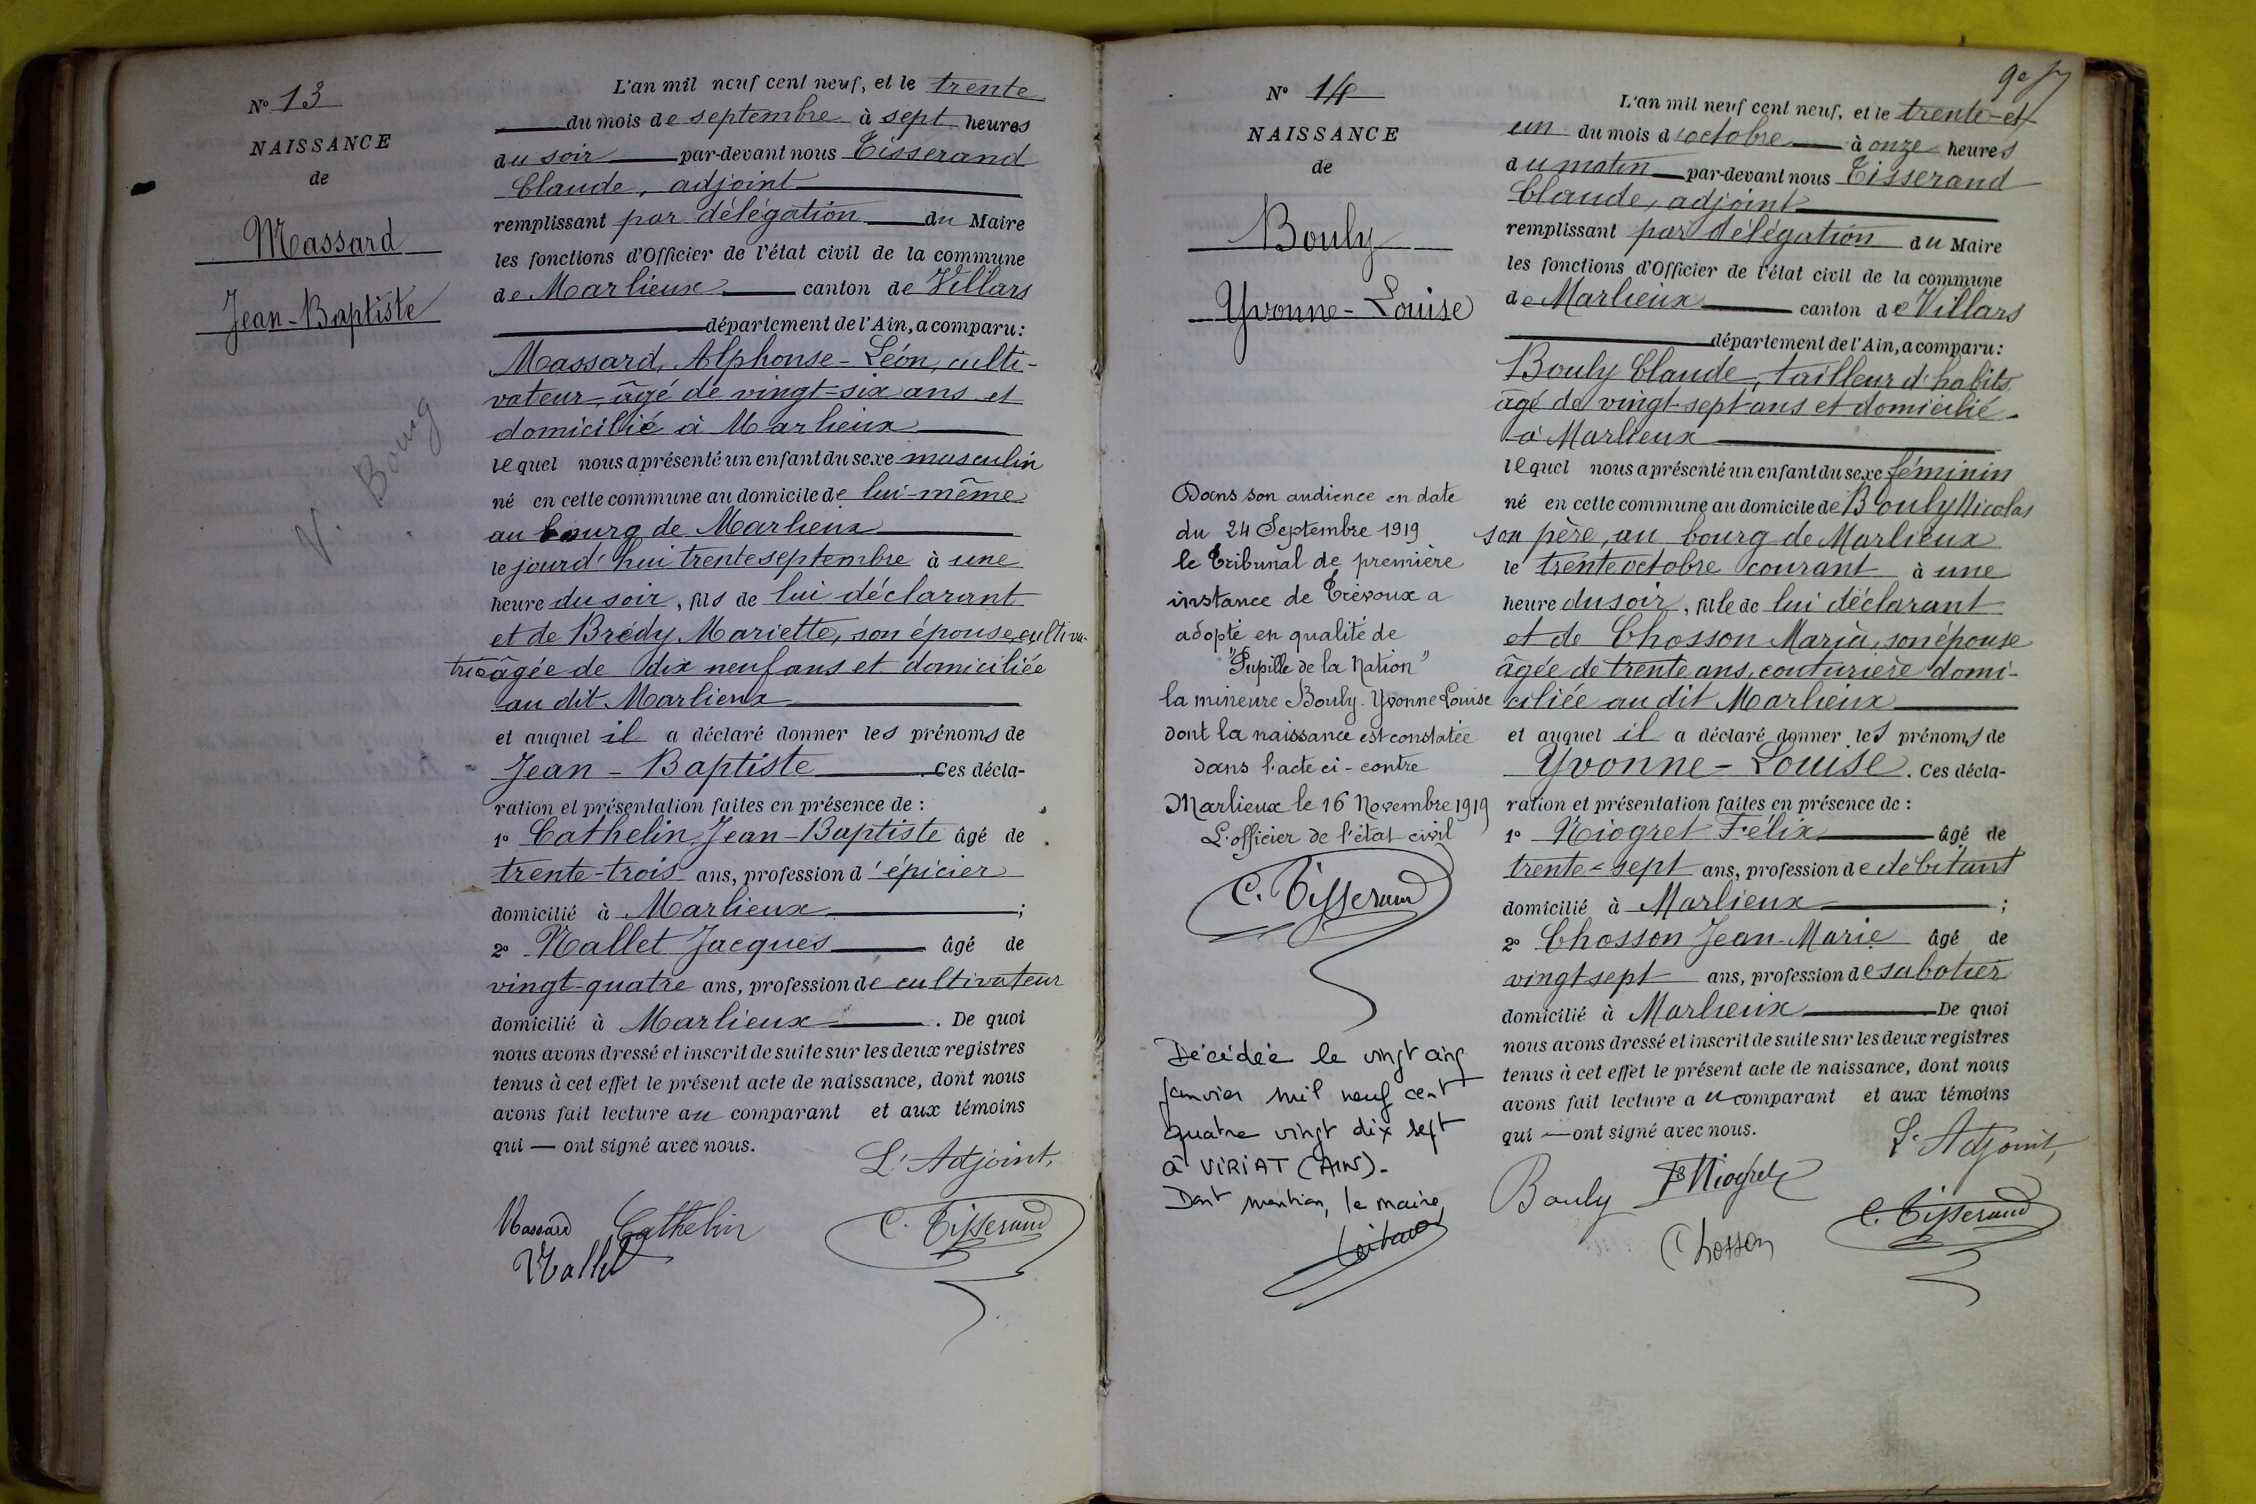 N° 13
NAISSANCE
de
Massard
Jean-Baptiste
V. Bourg
L'an mil neuf cent neuf, et le trente
du mois de septembre à sept heures
du soir par-devant nous Tisserand
Claude, adjoint
remplissant par délégation du Maire
les fonctions d'Officier de l'état civil de la commune
de Marlieux canton de Villars
département de l'Ain, a comparu :
Massard, Alphonse-Léon, culti-
vateur, âgé de vingt-six ans et
domicilié à Marlieux
lequel nous a présenté un enfant du sexe masculin
né en cette commune au domicile de lui-même
au bourg de Marlieux
le jourd'hui trente septembre à une
heure du soir, fils de lui déclarant
et de Brédy Mariette, son épouse, cultiva-
trice âgée de dix neuf ans et domiciliée
au dit Marlieux
et auquel il a déclaré donner les prénoms de
Jean-Baptiste. Ces décla-
ration et présentation faites en présence de :
1° Cathelin Jean-Baptiste âgé de
trente-trois ans, profession d'épicier
domicilié à Marlieux ;
2° Nallet Jacques âgé de
vingt-quatre ans, profession de cultivateur
domicilié à Marlieux. De quoi
nous avons dressé et inscrit de suite sur les deux registres
tenus à cet effet le présent acte de naissance, dont nous
avons fait lecture au comparant et aux témoins
qui — ont signé avec nous.
L'Adjoint,
Massard Cathelin C. Tisserand
Nallet
N° 14
NAISSANCE
de
Bouly
Yvonne-Louise
Dans son audience en date
du 24 Septembre 1919
le Tribunal de première
instance de Trévoux a
adopté en qualité de
"Pupille de la Nation"
la mineure Bouly Yvonne Louise
dont la naissance est constatée
dans l'acte ci-contre
Marlieux le 16 Novembre 1919
L'officier de l'état civil
C. Tisserand
Décédée le vingt cinq
janvier mil neuf cent
quatre vingt dix sept
à VIRIAT (AIN).
Dont mention, le maire
L'an mil neuf cent neuf, et le trente-et-
un du mois d'octobre à onze heures
du matin par-devant nous Tisserand
Claude, adjoint
remplissant par délégation du Maire
les fonctions d'Officier de l'état civil de la commune
de Marlieux canton de Villars
département de l'Ain, a comparu :
Bouly Claude, tailleur d'habits
âgé de vingt-sept ans et domicilié
à Marlieux
lequel nous a présenté un enfant du sexe féminin
né en cette commune au domicile de Bouly Nicolas
son père, au bourg de Marlieux
le trente octobre courant à une
heure du soir, fille de lui déclarant
et de Chosson Maria, son épouse
âgée de trente ans, couturière domi-
ciliée au dit Marlieux
et auquel il a déclaré donner les prénoms de
Yvonne-Louise. Ces décla-
ration et présentation faites en présence de :
1° Niogret Félix âgé de
trente-sept ans, profession de débitant
domicilié à Marlieux ;
2° Chosson Jean-Marie âgé de
vingt sept ans, profession de sabotier
domicilié à Marlieux De quoi
nous avons dressé et inscrit de suite sur les deux registres
tenus à cet effet le présent acte de naissance, dont nous
avons fait lecture au comparant et aux témoins
qui — ont signé avec nous.
L'Adjoint,
Bouly Niogret C. Tisserand
Chosson